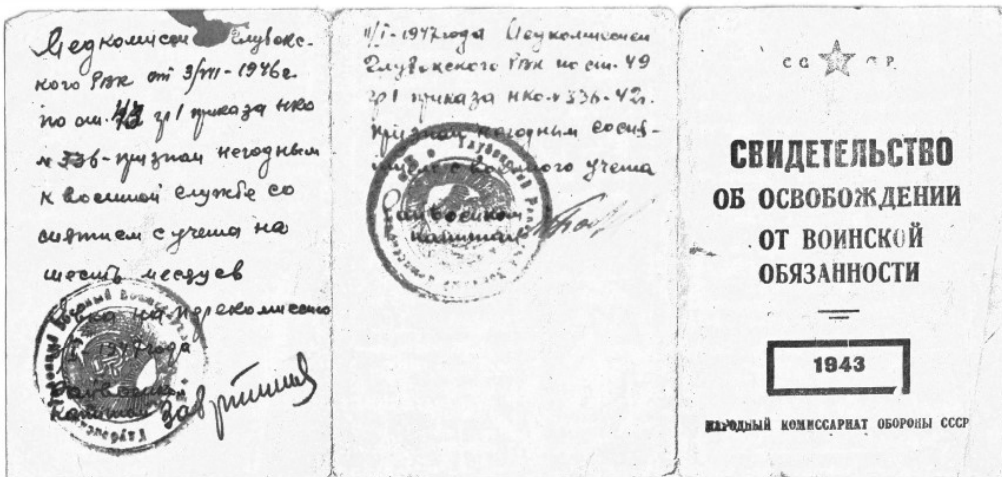 Медкомиссией Глубокс-
кого РВК от 3/VII-1946г.
по ст. гр I приказа НКО
№ 336 - признан негодным
к военной службе со
снятием с учета на
шесть месяцев
на перекомиссию
1947 года
Райвоенком
капитан
11/I-1947 года Медкомиссией
Глубокского РВК по ст. 49
гр I приказа НКО №336-42г.
признан негодным со сня-
тием с военного учета
Райвоенком
капитан
СССР
СВИДЕТЕЛЬСТВО
ОБ ОСВОБОЖДЕНИИ
ОТ ВОИНСКОЙ
ОБЯЗАННОСТИ
1943
НАРОДНЫЙ КОМИССАРИАТ ОБОРОНЫ СССР